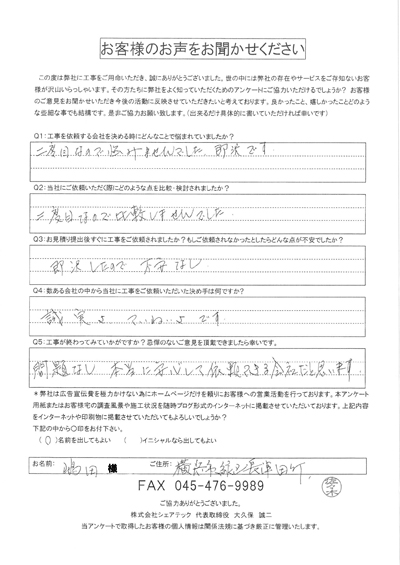 お客様のお声をお聞かせください
この度は弊社に工事をご用命いただき、誠にありがとうございました。世の中には弊社の存在やサービスをご存知ないお客
様が沢山いらっしゃいます。その方たちに弊社をよく知っていただくためのアンケートにご協力いただけるでしょうか? お客様
のご意見をお聞かせいただき今後の活動に反映させていただきたいと考えております。良かったこと、嬉しかったことどのよう
な些細な事でも結構です、是非ご協力お願い致します。(出来るだけ具体的に書いていただければ幸いです)
Q1:工事を依頼する会社を決める時にどんなことで悩まれていましたか?
二度目なので悩みませんでした。即決です
Q2:当社にご依頼いただく際にどのような点を比較・検討されましたか?
二度目なので比較しませんでした
Q3:お見積り提出後すぐに工事をご依頼されましたか?もしご依頼されなかったとしたらどんな点が不安でしたか?
即決したので 不安なし
Q4:数ある会社の中から当社に工事をご依頼いただいた決め手は何ですか?
誠実さ ていねいさ です
Q5:工事が終わってみていかがですか?忌憚のないご意見を頂戴できましたら幸いです。
問題なし 本当に安心して依頼できる会社だと思います
*弊社は広告宣伝費を極力かけない為にホームページだけを頼りにお客様への営業活動を行っております。本アンケート
用紙またはお客様宅の調査風景や施工状況を随時ブログ形式のインターネットに掲載させていただいております。上記内容
をインターネットや印刷物に掲載させていただいてもよろしいでしょうか?
下記の中から〇印をお付け下さい。
(〇)名前を出してもよい ( )イニシャルなら出してもよい
お名前: 嶋田 様 ご住所: 横浜市緑区長津田町
FAX 045-476-9989
ご協力ありがとうございました。
株式会社シェアテック 代表取締役 大久保 誠二
当アンケートで取得したお客様の個人情報は関係法規に基づき厳正に管理いたします。